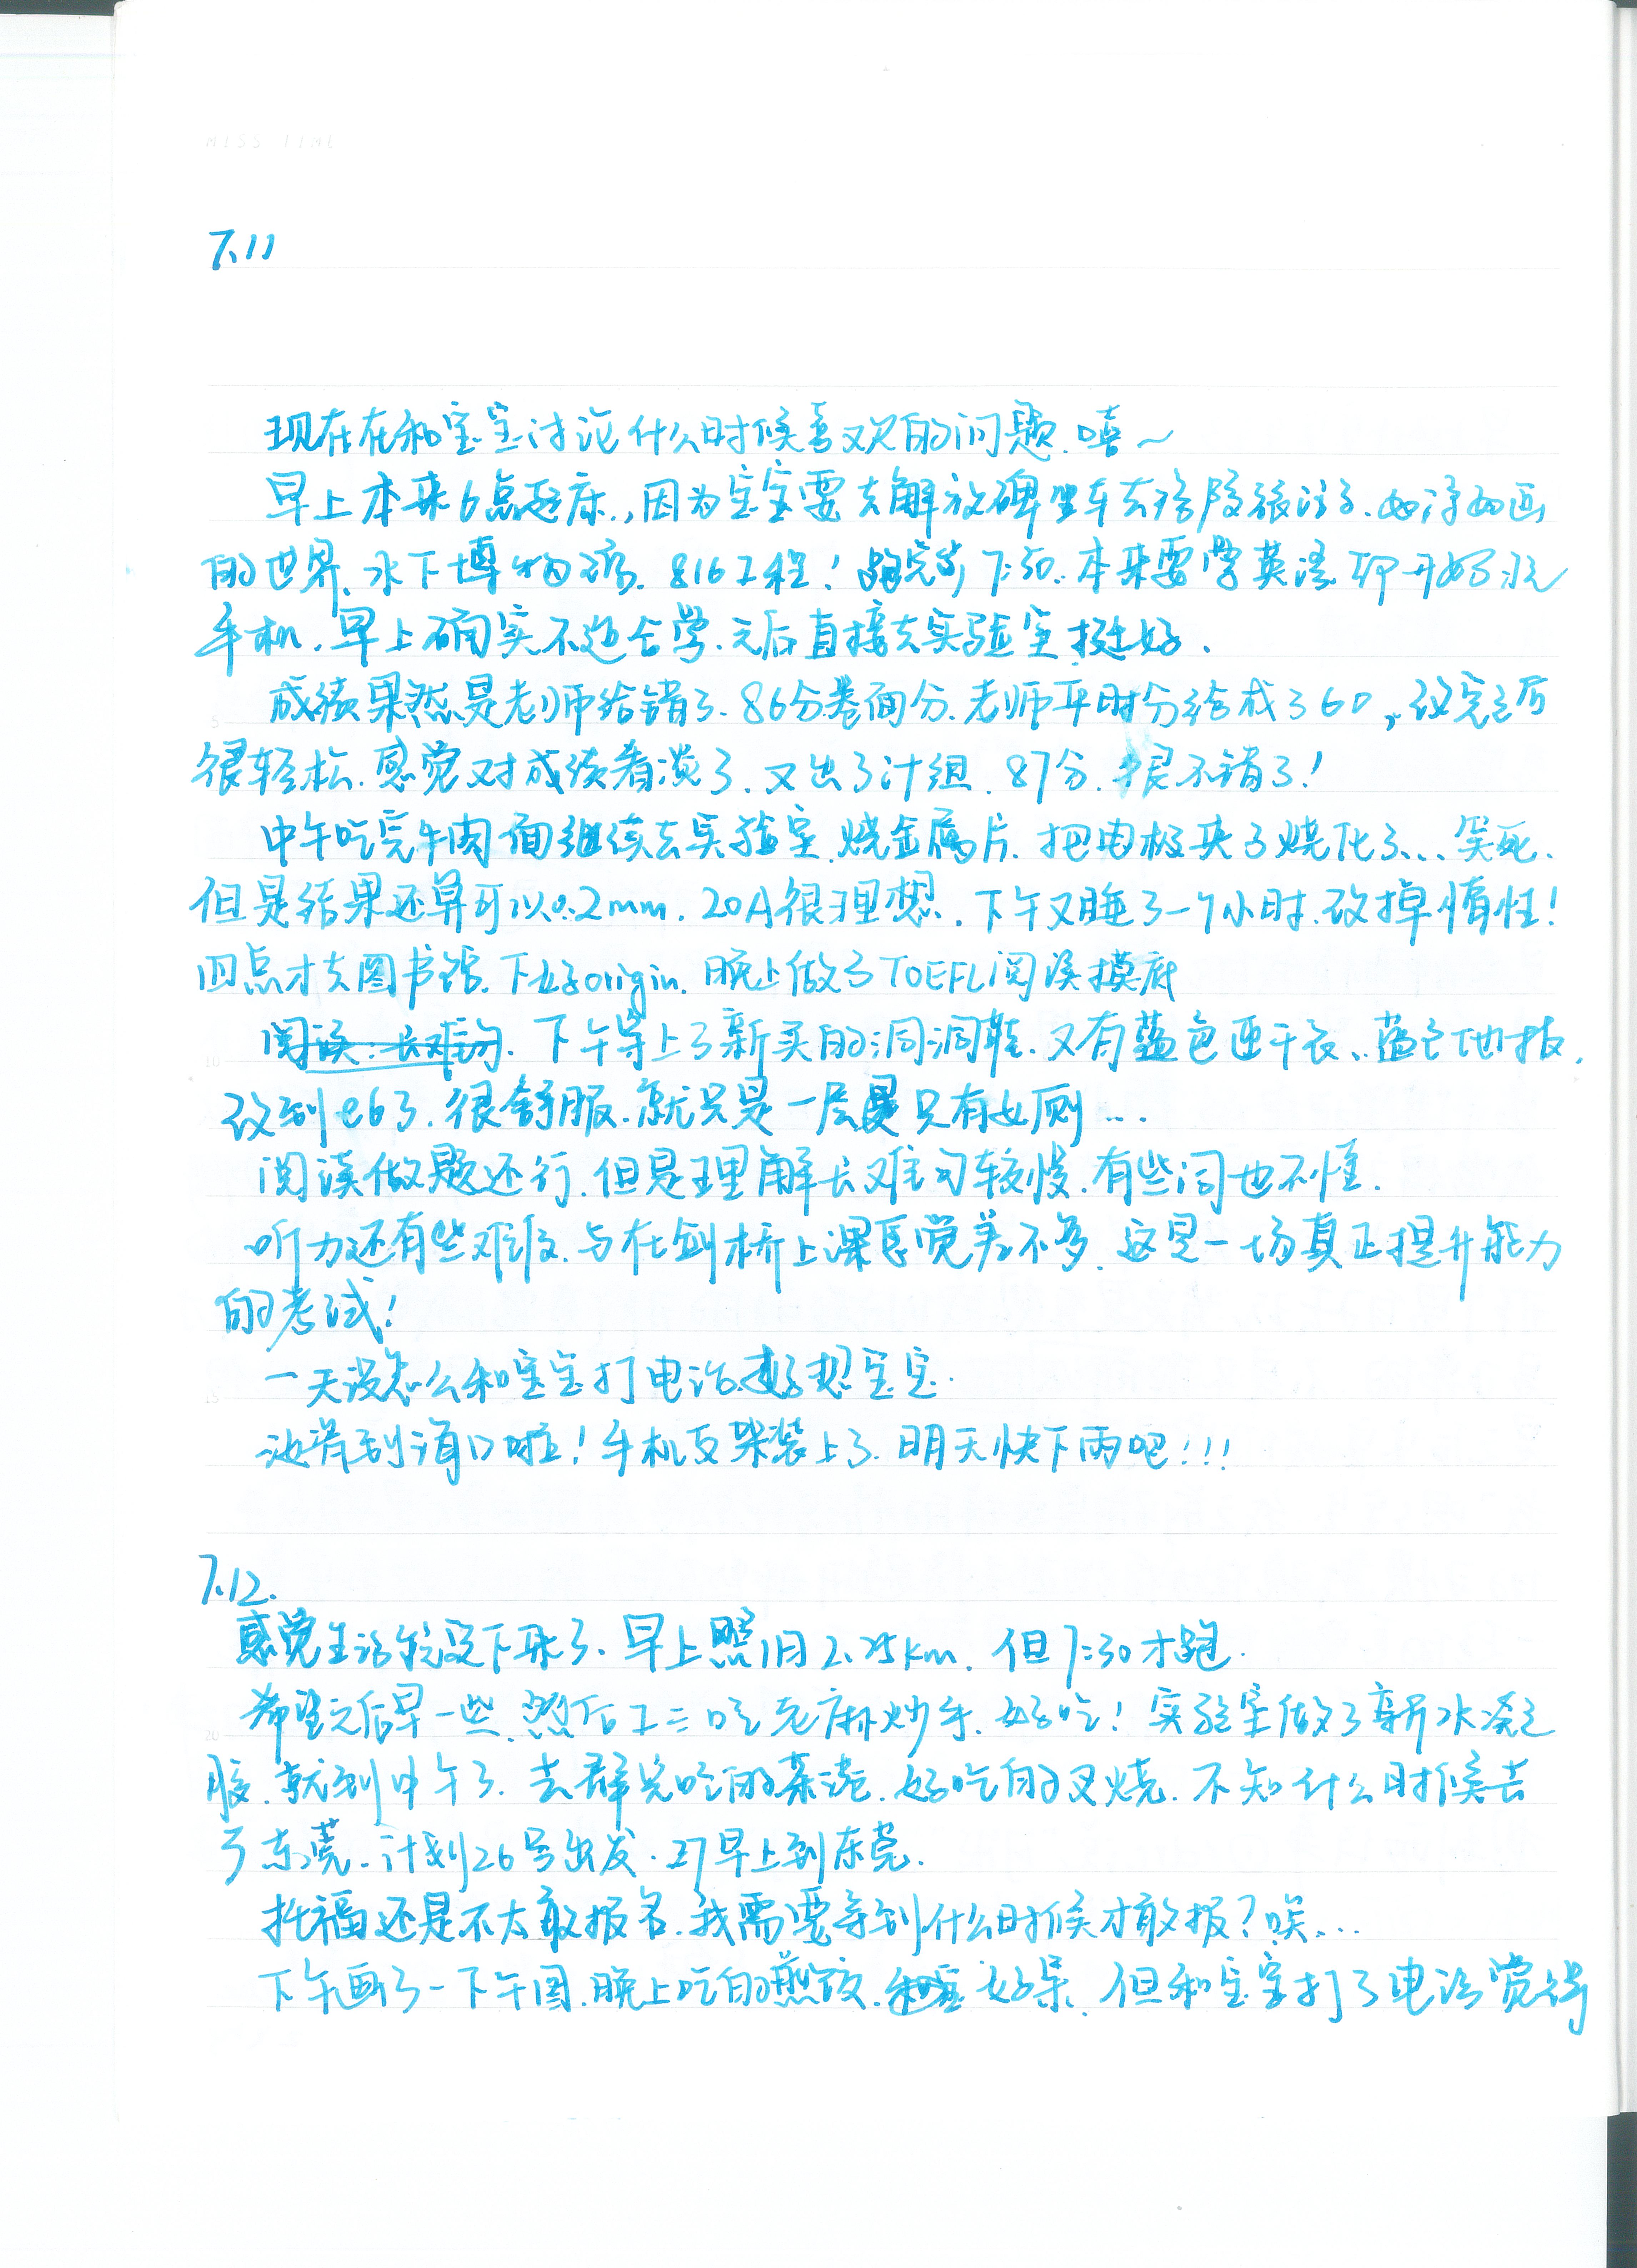 MISS TIME
7.11
现在在和宝宝讨论什么时候喜欢的问题.嘻~
早上本来6点起床.,因为宝宝要去解放碑坐车去涪陵张汪了.如诗如画
的世界、水下博物馆.816工程!跑完步7:50.本来要学英语
手机.早上确实不适合学.之后直接去实验室挺好.
成绩果然是老师给错了.86分卷面分.老师平时分给成了60,改完之后
很轻松.感觉对成绩看淡了.又出了计组.87分.很不错了!
中午吃完牛肉面继续去实验室.烧金属片.把电极夹子烧化了...笑死.
但是结果还算可以0.2mm.20A很理想.下午又睡了一个小时.改掉惰性!
四点才去图书馆.下好origin.晚上做了TOEFL阅读摸底
阅读:长难句.下午穿上了新买的洞洞鞋.又有蓝色速干衣、蓝色地板.
改到e6了.很舒服.就只是一层只有女厕...
阅读做题还行.但是理解长难句较慢.有些词也不懂.
听力还有些难度.与在剑桥上课感觉差不多.这是一场真正提升能力
的考试!
一天没怎么和宝宝打电话.好想宝宝.
到海口啦!手机支架装上了.明天快下雨吧!!!
7.12.
感觉生活稳定下来了.早上照旧2.25km.但7:30才跑.
希望之后早一些.然后工三吃老麻抄手.好吃!实验室做了新水凝
胶.就到中午了.去群吃的茶港.好吃的叉烧.不知什么时候去
了东莞.计划26号出发.27早上到东莞.
托福还是不太敢报名.我需要等到什么时候才敢报?唉...
下午画了一下午图.晚上吃的煎饺.好呆.但和宝宝打了电话觉得